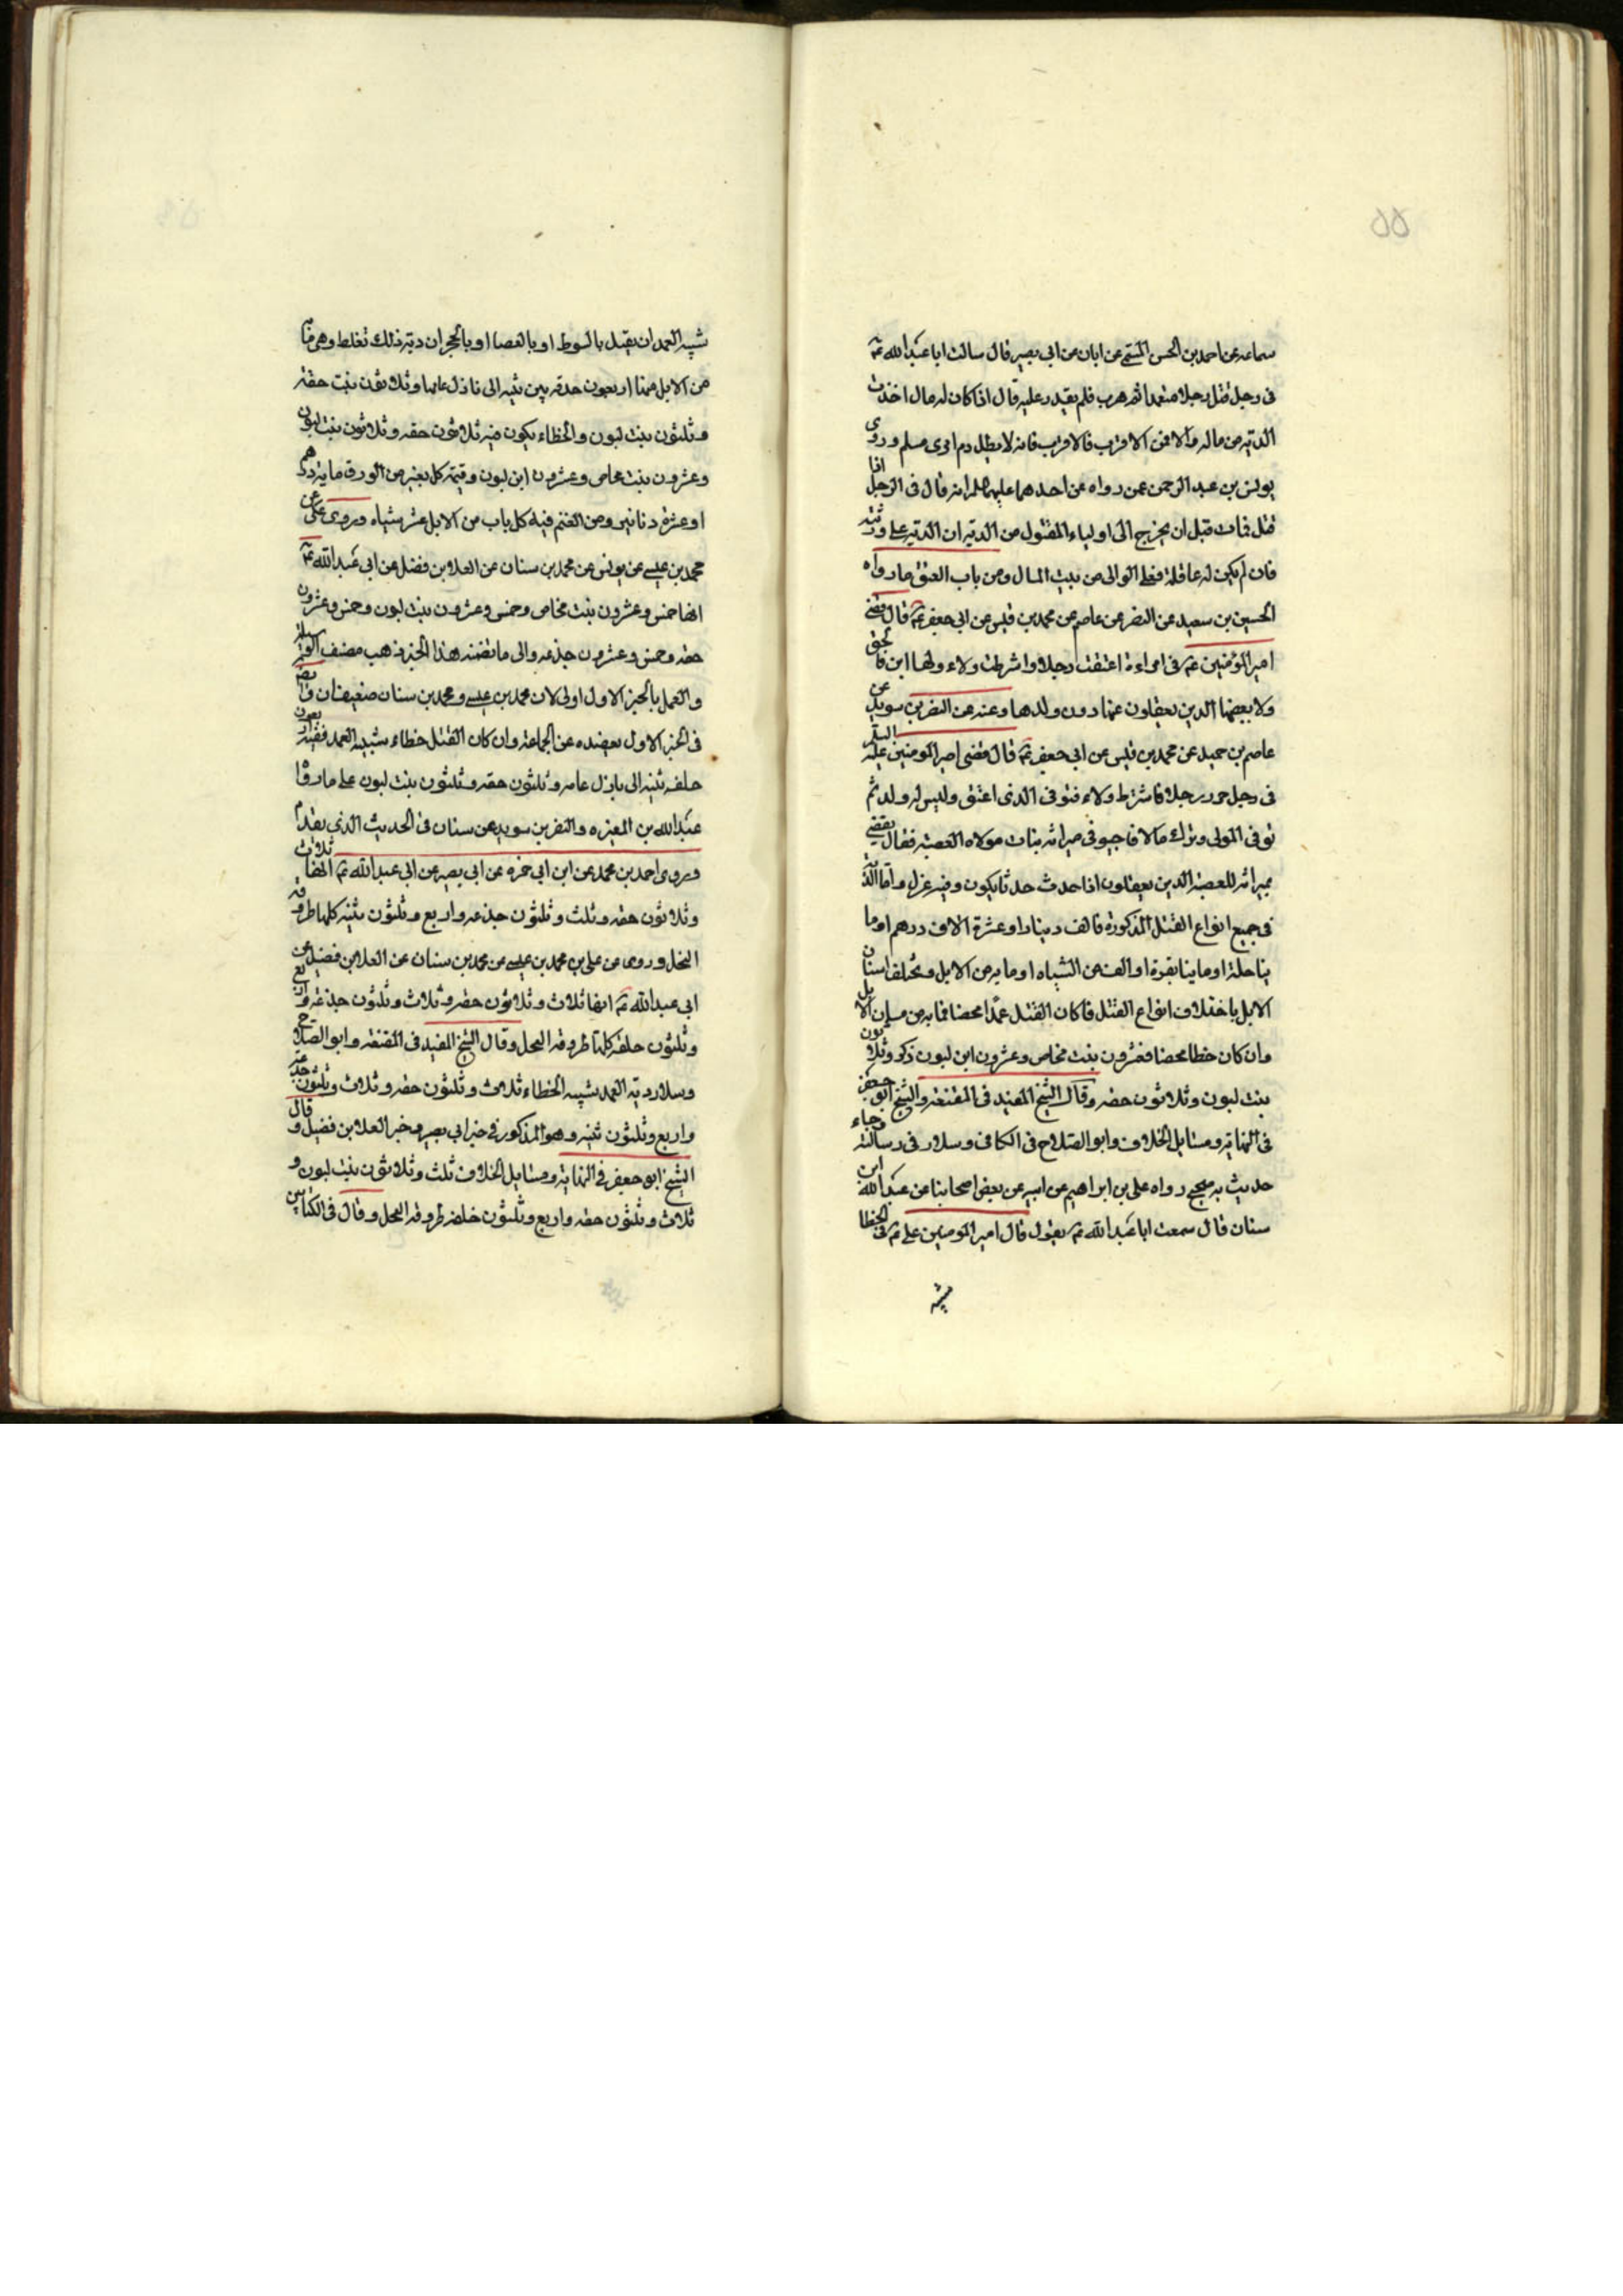 ۵۵
سماعه عن احمد بن الحسن المیثمی عن ابان عن ابی بصیر قال سالت ابا عبد الله عم
فی رجل قتل رجلا متعمدا ثم هرب فلم یقدر علیه قال اذا کان له مال اخذت
الدیة من ماله والا فمن الاقرب فالاقرب فانه لا یطل دم امری مسلم و روی
یونس بن عبد الرحمن عمن رواه عن احدهما علیهما السلم انه قال فی الرجل اذا
قتل فمات قبل ان یخرج الی اولیاء المقتول من الدیة ان الدیة علی ورثته
فان لم یکن له عاقلة فعلی الوالی من بیت المال ومن باب العتق ما رواه
الحسین بن سعید عن النضر عن عاصم عن محمد بن قیس عن ابی جعفر عم قال قضی
امیر المؤمنین عم فی امراءة اعتقت رجلا واشرطت ولاءه ولها ابن فالحق
ولاء بعضها الدین یعقلون عنها دون ولدها وعنه عن النضر بن سوید عن
عاصم بن حمید عن محمد بن قیس عن ابی جعفر عم قال قضی امیر المومنین علیه السلم
فی رجل حرر رجلا فاشترط ولاءه فتوفی الذی اعتق ولیس له ولد ثم
توفی المولی وترك مالا فاجبو فی میراثه بنات مولاه العصبة فقال یقضی
بمیراثه للعصبة الدین یعقلون اذا احدث حدثا یکون وفیه عزل واما الدیة
فی جمیع انواع القتل المذکورة فالف دینار او عشرة الاف درهم او ما
یتا حلة او ماینا بقرة او الف من الشیاه او مایه من الابل ویختلف اسنان
الابل باختلاف انواع القتل فاکان القتل عمدا محضا فمایه من مسان الابل
وان کان خطا محضا فعشرون بنت مخاض وعشرون ابن لبون ذکر وثلاثون
بنت لبون وثلاثون حقه وقال الشیخ المفید فی المقنعه والشیخ ابو جعفر
فی النهایة ومسایل الخلاف وابو الصلاح فی الکافی وسلار فی رسالته وجاء
حدیث به صحیح رواه علی بن ابراهیم عن ابیه عن بعض اصحابنا عن عبد الله ابن
سنان قال سمعت ابا عبد الله عم یقول قال امیر المومنین علی عم فی الخطا
شبیه
شبیه العمد ان یقتل بالسوط او بالعصا او بالحجر ان دیة ذلك تغلظ وهی مایة
من الابل منها اربعون خلفة بین ثنیه الی بازل عامها وثلاثون بنت حقه
وثلثون بنت لبون والخطاء یکون فیه ثلاثون حقه وثلاثون بنت لبون
وعشرون بنت مخاض وعشرون ابن لبون وقیمة کل بعیر من الورق مایة درهم
او عشرة دنانیر ومن الغنم قیمة کل ناب من الابل عشر شیاه وروی علی عن
محمد بن عیسی عن یونس عن محمد بن سنان عن العلاء بن فضل عن ابی عبد الله عم
انها خمس وعشرون بنت مخاض وخمس وعشرون بنت لبون وخمس وعشرون
حقه وخمس وعشرون جذعه والی ما تضمنه هذا الخبر ذهب مصنف الوسیلة
والعمل بالخبر الاول اولی لان محمد بن عیسی ومحمد بن سنان ضعیفان وما تضمنه
فی الخبر الاول یعضده عن الجماعة وان کان القتل خطاء شبیه العمد ففیه اربعون
خلفه ثنیه الی بازل عامه وثلثون حقه وثلثون بنت لبون علی ما رواه
عبد الله بن المغیره والنضر بن سوید عن سنان فی الحدیث الذی یقدم
وروی احمد بن محمد عن ابن ابی حمزه عن ابی بصیر عن ابی عبد الله عم انها ثلاث
وثلاثون حقه وثلث وثلثون جذعه واربع وثلثون ثنیه کلها طروقه
الفحل وروی عن علی بن محمد بن عیسی عن محمد بن سنان عن العلا بن فضیل عن
ابی عبد الله عم انها ثلاث وثلاثون حقه وثلاث وثلثون جذعه واربع
وثلثون خلفه کلها طروقه الفحل وقال الشیخ المفید فی المقنعه وابو الصلاح
وسلار دیة العمد شبیه الخطاء ثلاث وثلثون حقه وثلاث وثلثون جذعه
واربع وثلثون ثنیه وهو المذکور فی خبر ابی بصیر وخبر العلا بن فضیل وقال
الشیخ ابو جعفر فی النهایة ومسایل الخلاف ثلث وثلاثون بنت لبون و
ثلاث وثلثون حقه واربع وثلثون خلفه طروقه الفحل وقال فی الکتابین